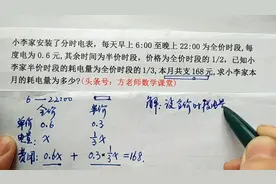 小李家安装了分时电表，每天早上 6:00 至晚上 22:00 为全价时段，每
度电为 0.6 元，其余时间为半价时段，价格为全价时段的 1/2，已知小
李家半价时段的耗电量为全价时段的 1/3，本月共支 168 元，求小李家本
月的耗电量为多少?（头条号：方老师数学课堂）
6 — 22:00
全价 半价
单价 0.6 0.3
电量: x 1/3 x
费用: 0.6x + 0.3·1/3 x = 168.
解: 设全价时耗电量